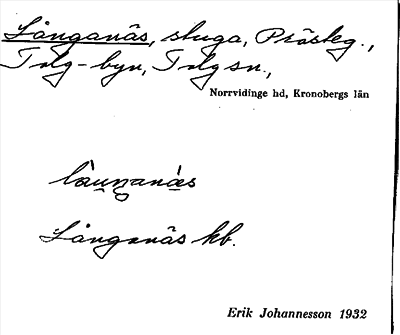 Långanäs, stuga, Prästeg.,
Tolg-byn, Tolg sn.,
Norrvidinge hd, Kronobergs län
Långanäs kb.
Erik Johannesson 1932